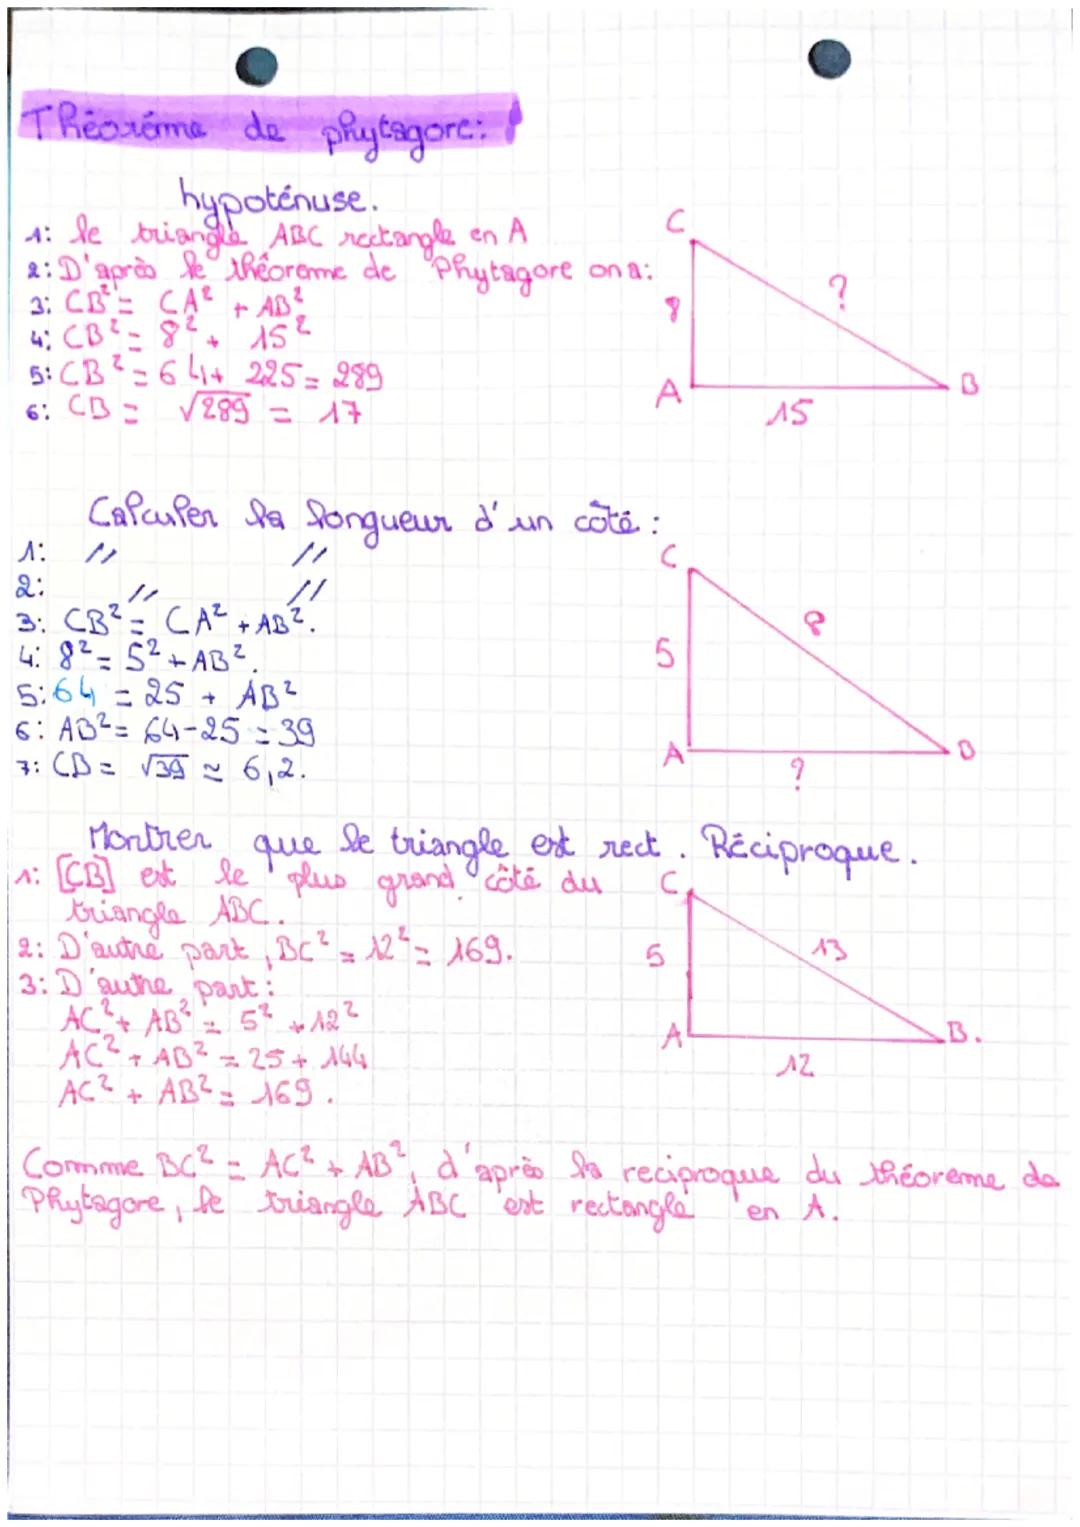 Théorème de phytagore:
hypoténuse.
1: le triangle ABC rectangle en A
2: D'après le théoreme de Phytagore on a:
3: CB² = CA² + AB²
4: CB² = 8² + 15²
5: CB² = 64 + 225 = 289
6: CB = √289 = 17
C
8
?
A
15
B
Calculer la longueur d'un côté :
1: // //
2: // //
3: CB² = CA² + AB².
4: 8² = 5² + AB².
5: 64 = 25 + AB²
6: AB² = 64-25 = 39
7: CB = √39 ≃ 6,2.
C
5
8
A
?
B
Montrer que le triangle est rect. Réciproque.
1: [CB] est le plus grand côté du
triangle ABC.
2: D'autre part, BC² = 12² = 169.
3: D'autre part :
AC² + AB² = 5² + 12²
AC² + AB² = 25 + 144
AC² + AB² = 169.
C
5
13
A
12
B.
Comme BC² = AC² + AB², d'après la reciproque du théoreme de
Phytagore, le triangle ABC est rectangle en A.